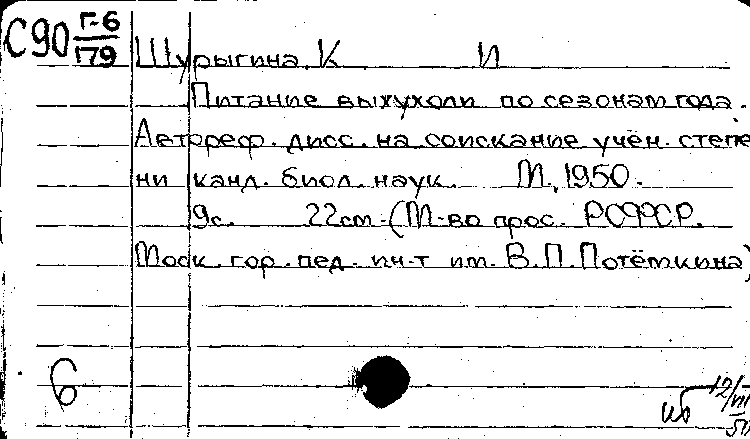 С90 Г-6/179
Шурыгина К И
Питание выхухоли по сезонам года.
Автореф. дисс. на соискание учён. степе
ни канд. биол. наук. М, 1950.
9с. 22см (М-во прос. РСФСР.
Моск. гор. пед. ин-т им. В.П.Потёмкина)
6
12/VII